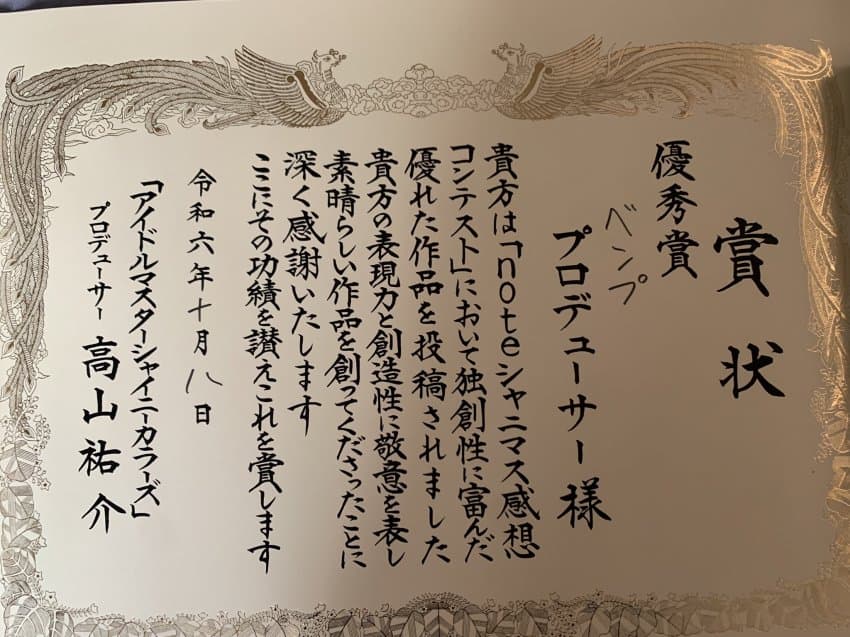 賞状
優秀賞
ベンプ
プロデューサー様
貴方は「noteシャニマス感想
コンテスト」において独創性に富んだ
優れた作品を投稿されました
貴方の表現力と創造性に敬意を表し
素晴らしい作品を創ってくださったことに
深く感謝いたします
ここにその功績を讃えこれを賞します
令和六年十月八日
「アイドルマスターシャイニーカラーズ」
プロデューサー 高山祐介